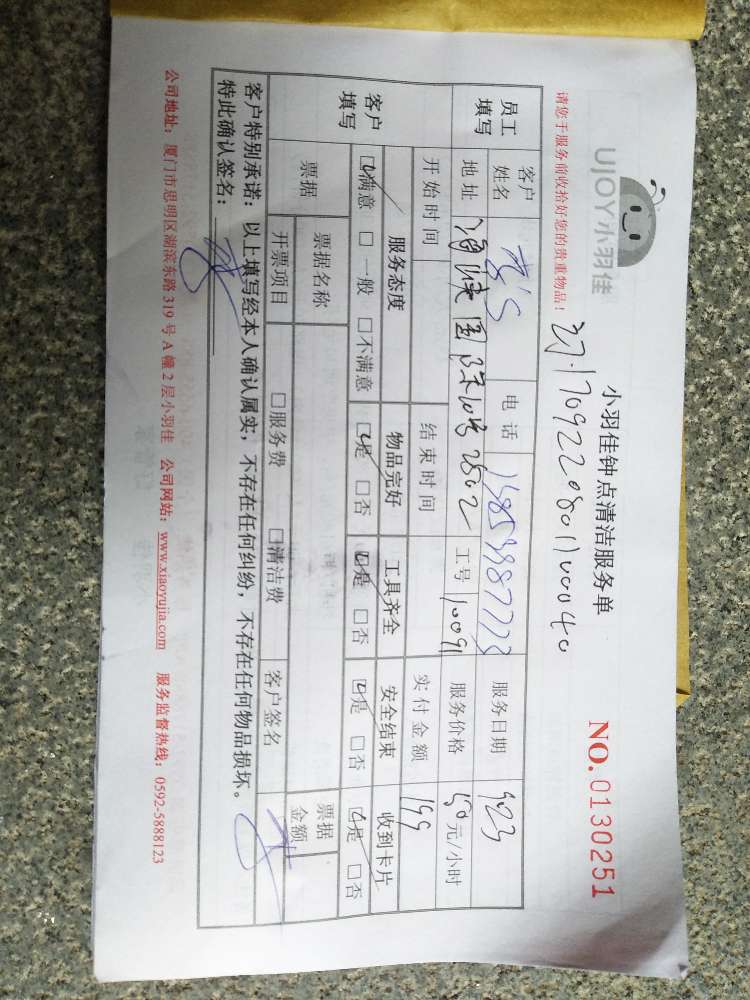 UJOY小羽佳
小羽佳钟点清洁服务单
NO.0130251
请您于服务前收拾好您的贵重物品！
员工填写 客户姓名 电话 服务日期 923
地址 2802 工号 10091 服务价格 50元/小时
开始时间 结束时间 实付金额 199
客户填写 服务态度 物品完好 工具齐全 安全结束 收到卡片
☑满意 □一般 □不满意 ☑是 □否 ☑是 □否 ☑是 □否 ☑是 □否
票据 票据名称 票据金额
开票项目 □服务费 □清洁费 客户签名
客户特别承诺：以上填写经本人确认属实，不存在任何纠纷，不存在任何物品损坏。
特此确认签名：
公司地址：厦门市思明区湖滨东路319号A幢2层小羽佳 公司网站：www.xiaoyujia.com 服务监督热线：0592-5888123